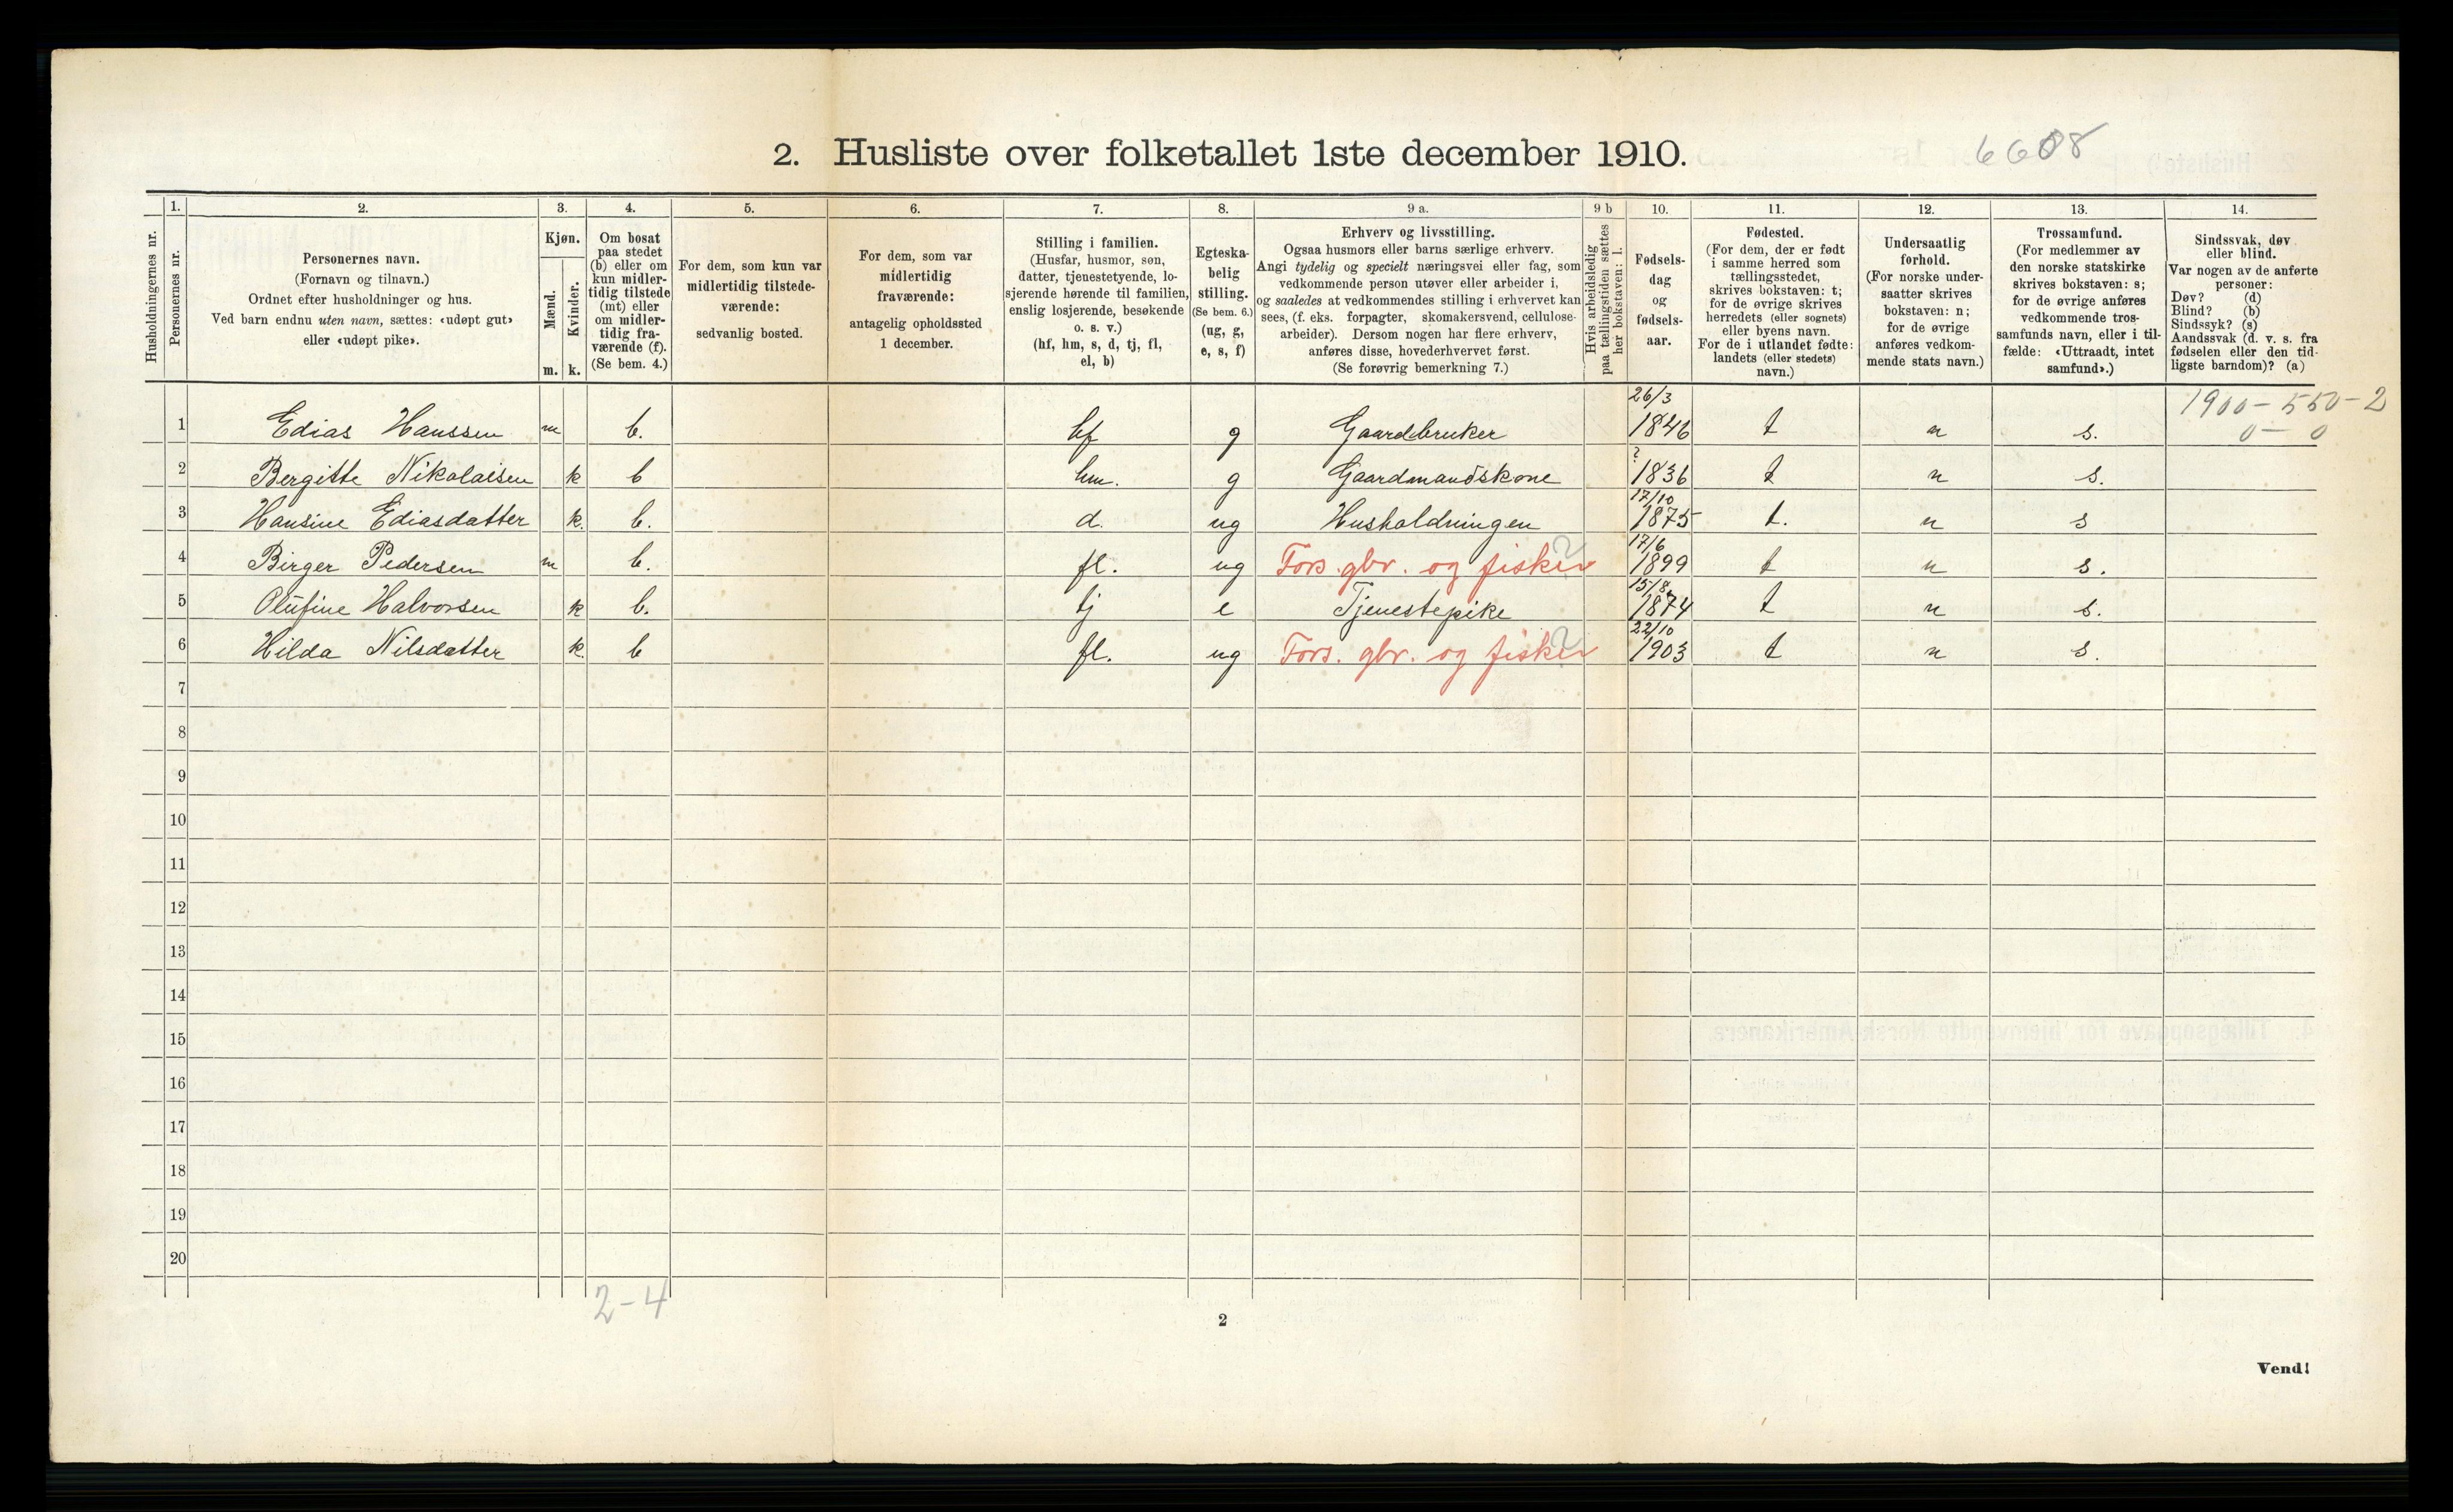 2. Husliste over folketallet 1ste december 1910.
6608
1. 2. 3. 4. 5. 6. 7. 8. 9 a. 9 b 10. 11. 12. 13. 14.
Husholdningernes nr.
Personernes nr.
Personernes navn.
(Fornavn og tilnavn.)
Ordnet efter husholdninger og hus.
Ved barn endnu uten navn, sættes: «udøpt gut»
eller «udøpt pike».
Kjøn.
Mænd.
Kvinder.
m. k.
Om bosat
paa stedet
(b) eller om
kun midler-
tidig tilstede
(mt) eller
om midler-
tidig fra-
værende (f).
(Se bem. 4.)
For dem, som kun var
midlertidig tilstede-
værende:
sedvanlig bosted.
For dem, som var
midlertidig
fraværende:
antagelig opholdssted
1 december.
Stilling i familien.
(Husfar, husmor, søn,
datter, tjenestetyende, lo-
sjerende hørende til familien,
enslig losjerende, besøkende
o. s. v.)
(hf, hm, s, d, tj, fl,
el, b)
Egteska-
belig
stilling.
(Se bem. 6.)
(ug, g,
e, s, f)
Erhverv og livsstilling.
Ogsaa husmors eller barns særlige erhverv.
Angi tydelig og specielt næringsvei eller fag, som
vedkommende person utøver eller arbeider i,
og saaledes at vedkommendes stilling i erhvervet kan
sees, (f. eks. forpagter, skomakersvend, cellulose-
arbeider). Dersom nogen har flere erhverv,
anføres disse, hovederhvervet først.
(Se forøvrig bemerkning 7.)
Hvis arbeidsledig
paa tællingstiden sættes
her bokstaven: l.
Fødsels-
dag
og
fødsels-
aar.
Fødested.
(For dem, der er født
i samme herred som
tællingsstedet,
skrives bokstaven: t;
for de øvrige skrives
herredets (eller sognets)
eller byens navn.
For de i utlandet fødte:
landets (eller stedets)
navn.)
Undersaatlig
forhold.
(For norske under-
saatter skrives
bokstaven: n;
for de øvrige
anføres vedkom-
mende stats navn.)
Trossamfund.
(For medlemmer av
den norske statskirke
skrives bokstaven: s;
for de øvrige anføres
vedkommende tros-
samfunds navn, eller i til-
fælde: «Uttraadt, intet
samfund».)
Sindssvak, døv
eller blind.
Var nogen av de anførte
personer:
Døv? (d)
Blind? (b)
Sindssyk? (s)
Aandssvak (d. v. s. fra
fødselen eller den tid-
ligste barndom)? (a)
1900-550-2
0-0
1 Edias Hanssen m b. hf g Gaardbruker 26/3 1846 t n s.
2 Bergitte Nikolaisen k b hm. g Gaardmandskone ? 1836 t n s.
3 Hansine Ediasdatter k. b. d. ug Husholdningen 17/10 1875 t. n s
4 Birger Pedersen m b. fl. ug Fors. gbr. og fisker 2 17/6 1899 t n s.
5 Olufine Halvorsen k b. tj e Tjenestepike 15/8 1874 t n s.
6 Hilda Nilsdatter k. b fl. ug Fors. gbr. og fisker 2 22/10 1903 t n s.
7
8
9
10
11
12
13
14
15
16
17
18
19
20
2-4
2
Vend!